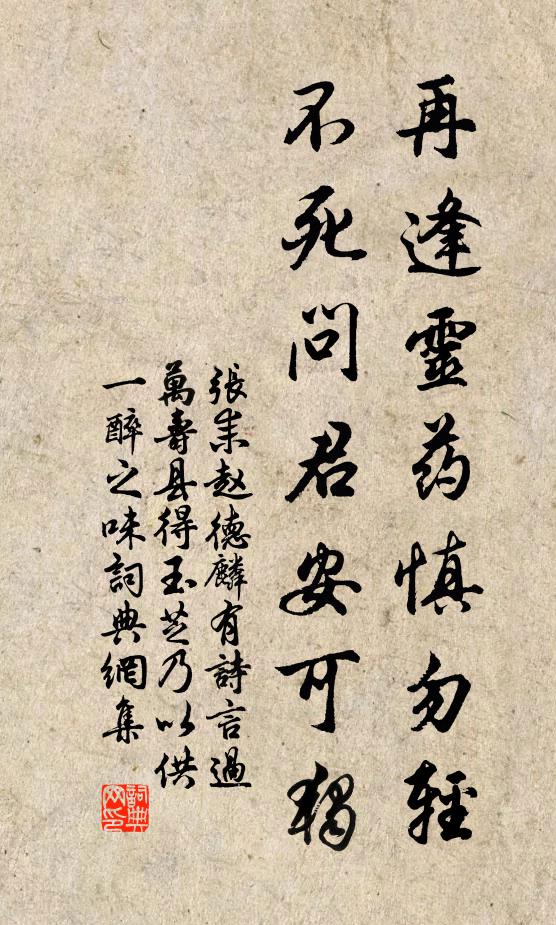 再逢靈药慎勿輕
不死問君安可獨
張耒赵德麟有詩言過
萬壽县得玉芝乃以供
一醉之味詞典網集
詞典
网印